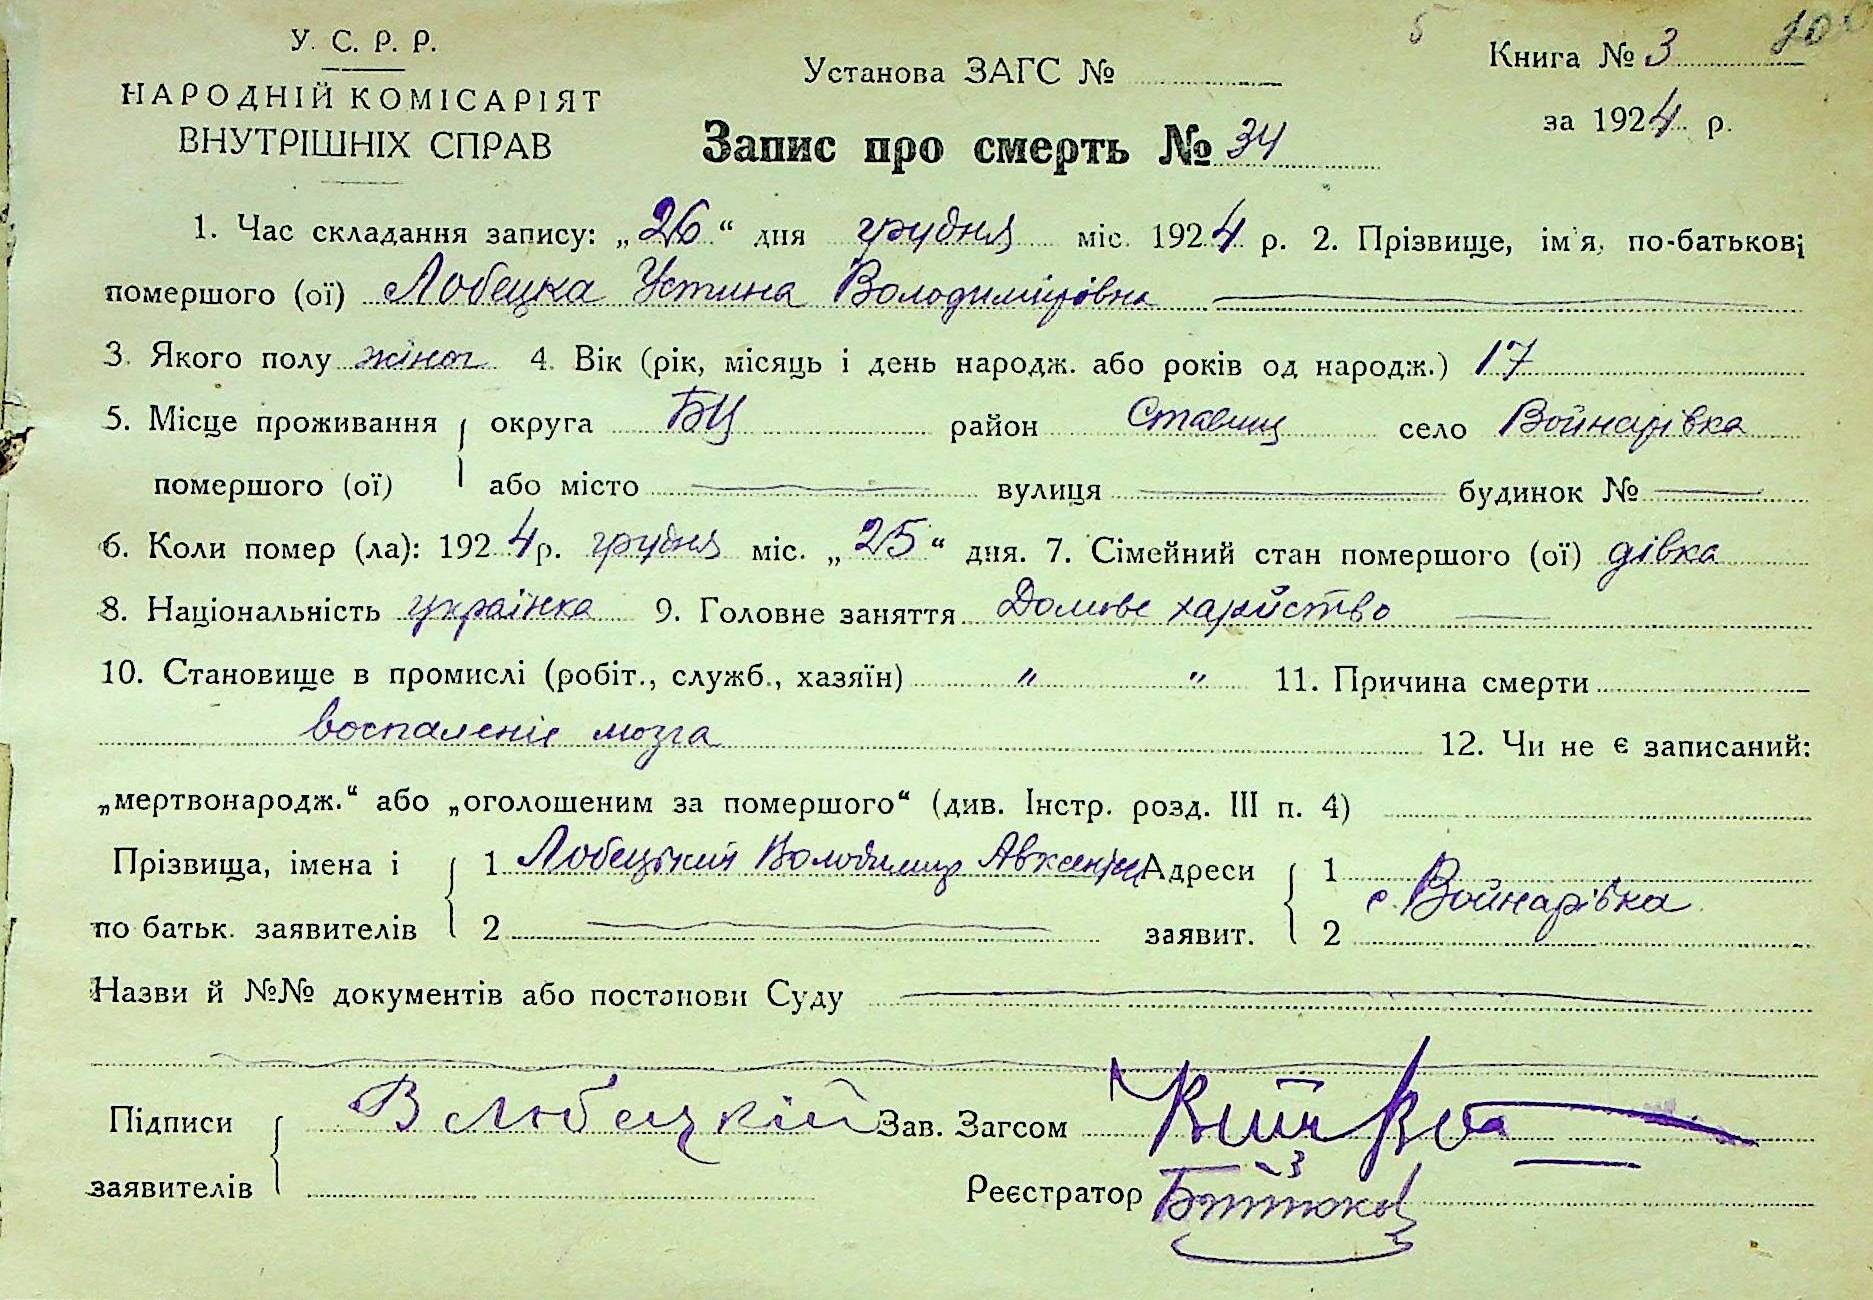 У. С. Р. Р.
НАРОДНІЙ КОМІСАРІЯТ
ВНУТРІШНІХ СПРАВ
Установа ЗАГС №
Книга № 3
за 1924 р.
Запис про смерть № 34
1. Час складання запису: „26“ дня грудня міс. 1924 р. 2. Прізвище, ім'я, по-батькові
помершого (ої) Лобецка Устина Володимирівна
3. Якого полу жіноч 4. Вік (рік, місяць і день народж. або років од народж.) 17
5. Місце проживання округа БЦ район Ставищ село Войнарівка
помершого (ої) або місто вулиця будинок №
6. Коли помер (ла): 1924 р. грудня міс. „25“ дня. 7. Сімейний стан помершого (ої) дівка
8. Національність українка 9. Головне заняття Домове
10. Становище в промислі (робіт., служб., хазяїн) „ „ 11. Причина смерти
воспаленіе мозга
12. Чи не є записаний:
„мертвонародж.“ або „оголошеним за помершого“ (див. Інстр. розд. III п. 4)
Прізвища, імена і 1 Лобецький Володимир Адреси 1
с. Войнарівка
по батьк. заявителів 2 заявит. 2
Назви й №№ документів або постанови Суду
Підписи В Любецкій Зав. Загсом
заявителів Реєстратор